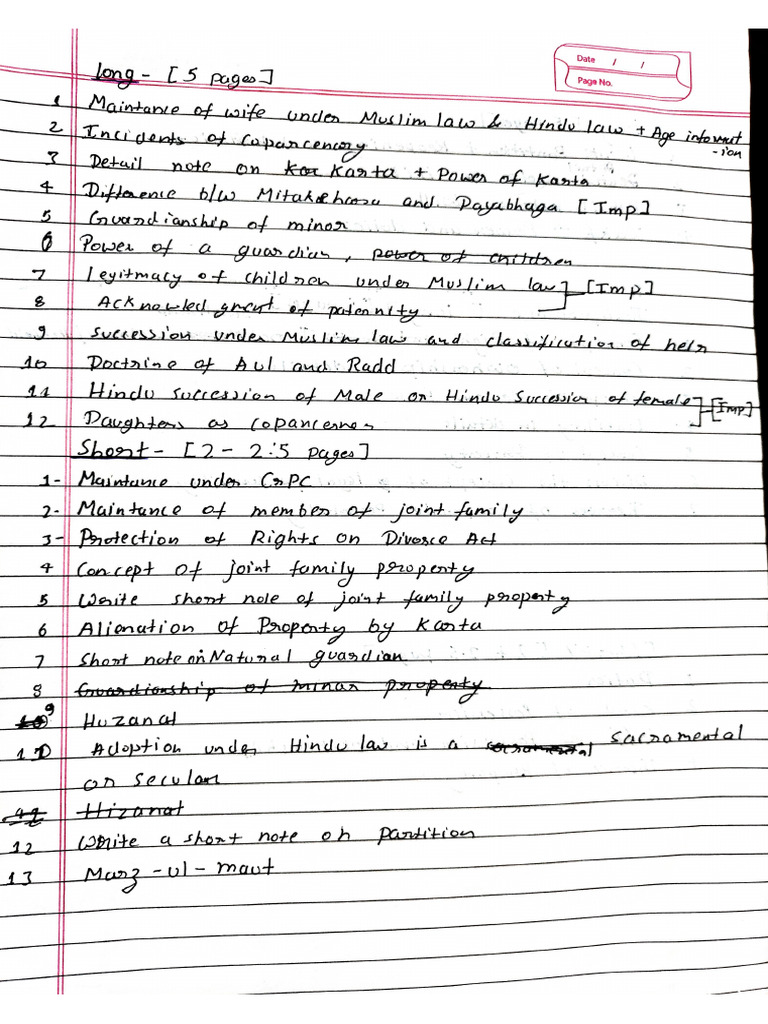 Date / /
Page No.
Long - [5 pages]
1 Maintance of wife under Muslim law & Hindu law + Age informat
-ion
2 Incidents of Coparcenary
3 Detail note on Kar Karta + Power of Karta
4 Difference b/w Mitakshara and Dayabhaga [Imp]
5 Guardianship of minor
6 Power of a guardian, power of children
7 Legitmacy of children under Muslim law [Imp]
8 Acknowledgment of paternity
9 Succession under Muslim law and classification of heir
10 Doctrine of Aul and Radd
11 Hindu Succession of Male or Hindu Succession of female [Imp]
12 Daughters as copancerner
Short - [2 - 2.5 pages]
1- Maintance under CrPC
2- Maintance of member of joint family
3- Protection of Rights on Divorce Act
4 Concept of joint family property
5 Write short note of joint family property
6 Alienation of Property by Karta
7 Short note on Natural guardian
8 Guardianship of minar property
9 Huzanat
11 Adoption under Hindu law is a sacramental sacramental
or secular
Hizanat
12 Write a short note on partition
13 Marz-ul-maut